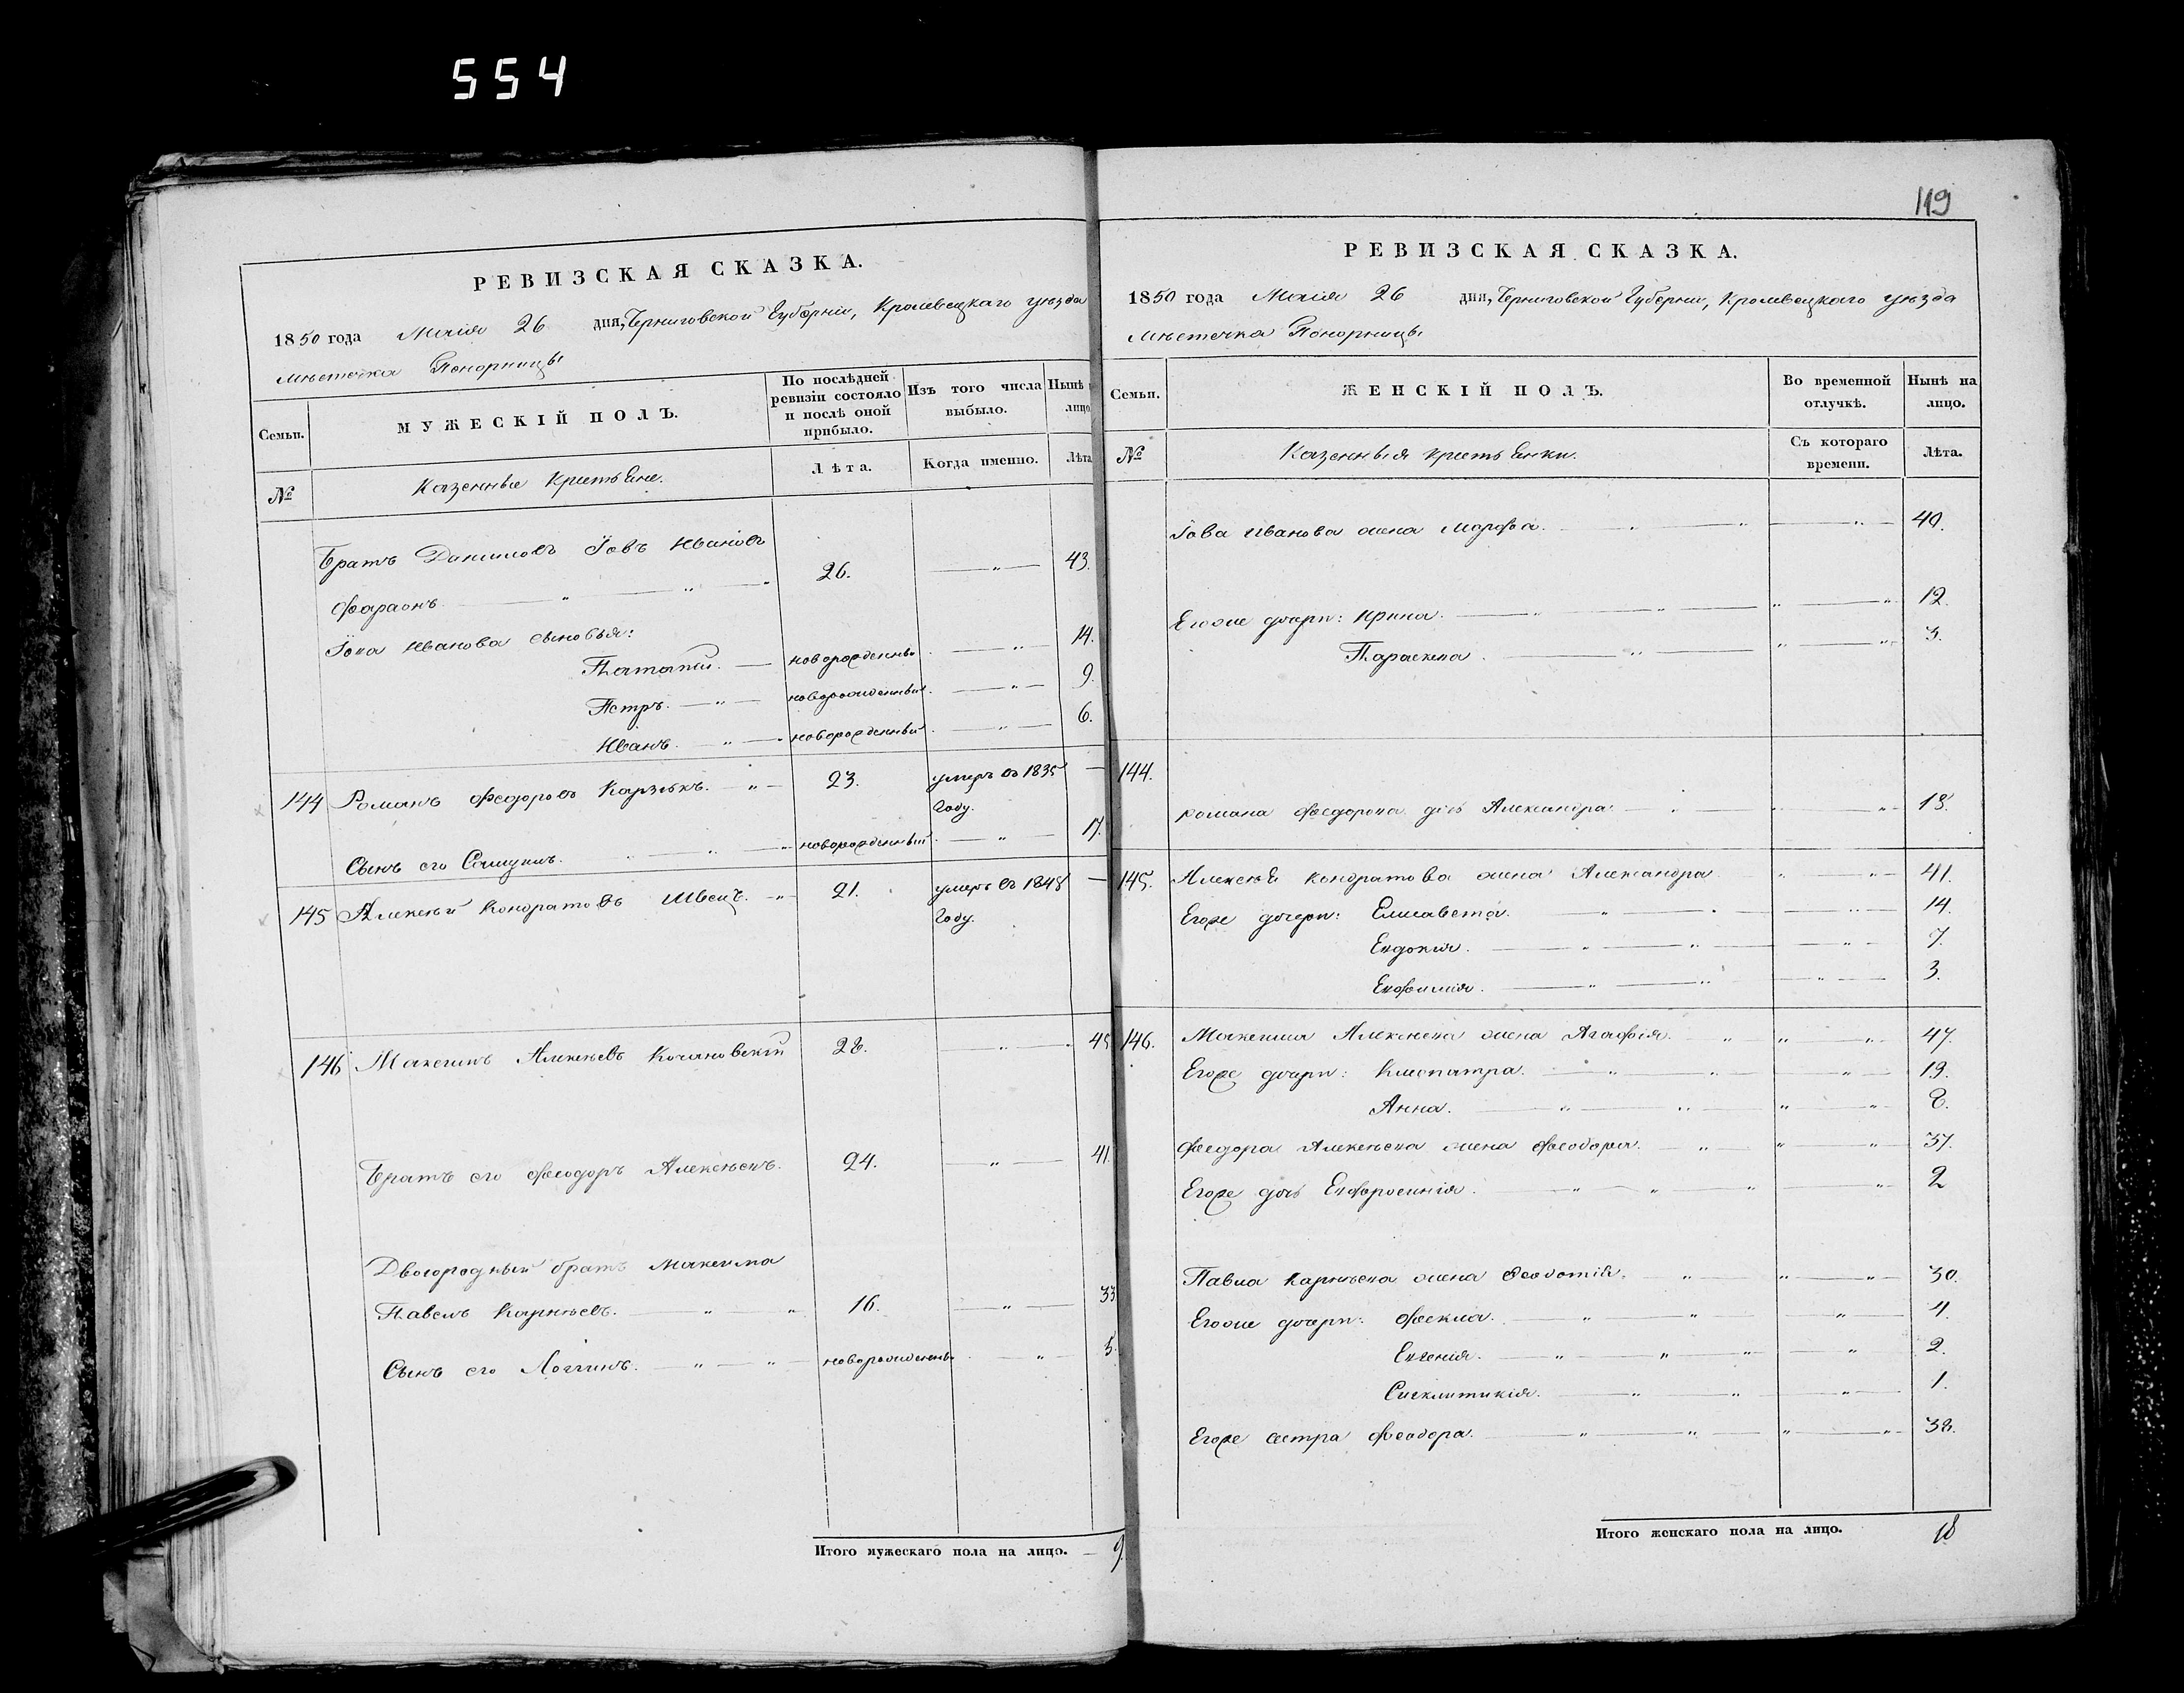 554
119
РЕВИЗСКАЯ СКАЗКА.
1850 года Маія 26 дня, Черниговской Губерніи, Кролевецкаго уѣзда
мѣстечка Понорницы
Семьи.
МУЖЕСКІЙ ПОЛЪ.
По послѣдней ревизіи состояло и послѣ оной прибыло.
Изъ того числа выбыло.
Нынѣ
лицо
№
Казенные Крестьяне.
Лѣта.
Когда именно.
Лѣта
Братъ Даниловъ Іовъ Ивановъ
Фараонъ 26. 43.
Іова Иванова сыновья:
Патапій. новорожденный. 14.
Петръ. новорожденный. 9.
Иванъ. новорожденный. 6.
144 Романъ Федоровъ 23. умеръ въ 1835
году.
Сынъ его новорожденный. 17.
145 Алексѣй Кондратовъ Швецъ. 21. умеръ въ 1848
году.
146 Максимъ Алексѣевъ Кочановскій 28. 45
Братъ его Феодоръ Алексѣевъ. 24. 41
Двоюродный братъ Максима
Павелъ Карнѣевъ. 16. 33
Сынъ его Логгинъ. новорожденный. 5.
Итого мужескаго пола на лицо. 9.
РЕВИЗСКАЯ СКАЗКА.
1850 года Маія 26 дня, Черниговской Губерніи, Кролевецкаго уѣзда
мѣстечка Понорницы
Семьи.
ЖЕНСКІЙ ПОЛЪ.
Во временной отлучкѣ.
Нынѣ на лицо.
№
Казенныя крестьянки.
Съ котораго времени.
Лѣта.
Іова Иванова жена Марфа. 40.
Егоже дочери: Ирина. 12.
Параскева. 3.
144.
Романа Федорова дочь Александра. 18.
145. Алексѣя Кондратова жена Александра 41.
Егоже дочери: Елисавета. 14.
Евдокія. 7.
Евфимія. 3.
146. Максима Алексѣева жена Агафія. 47.
Егоже дочери: Клеопатра. 19.
Анна. 8.
Федора Алексѣева жена Феодора. 37.
Егоже дочь Евфросинія. 2
Павла Карнѣева жена Феодотія. 30.
Егоже дочери: Фекла. 4.
Евгенія. 2.
Сигклитикія. 1.
Егоже сестра Феодора. 38.
Итого женскаго пола на лицо. 18